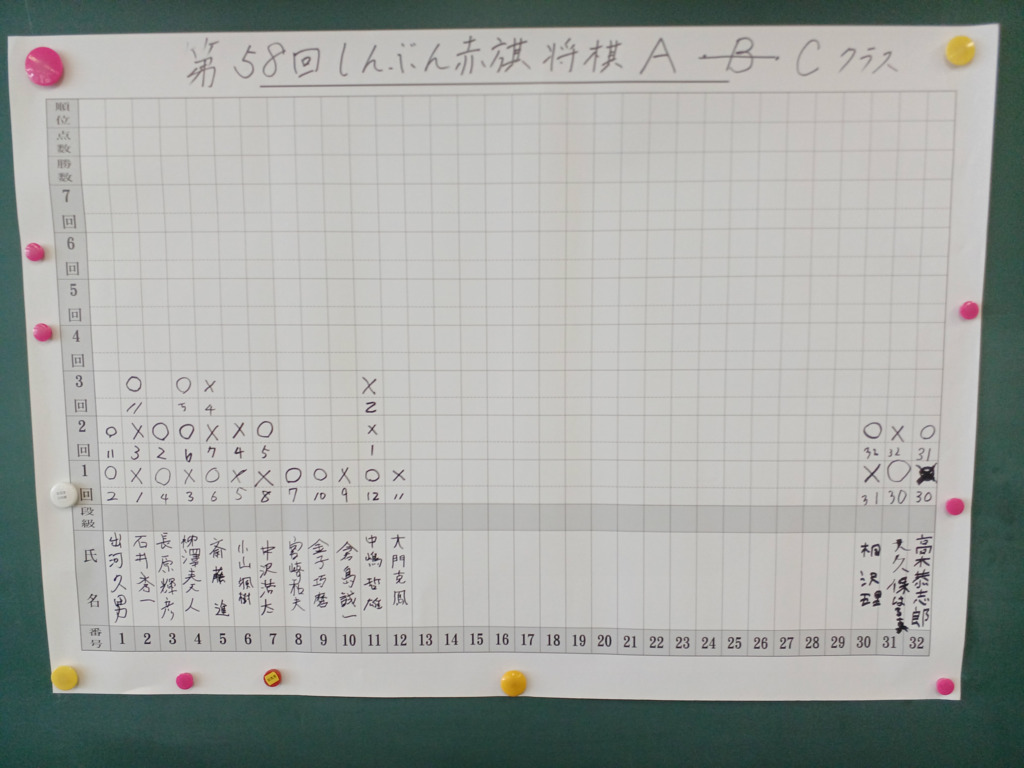 第58回しんぶん赤旗将棋A B Cクラス
順位
点数
勝数
7回
6回
5回
4回
3回 ○ ○ × ×
11 5 4 2
2回 ○ × ○ ○ × × ○ × ○ × ○
11 3 2 6 7 4 5 1 32 32 31
1回 ○ × ○ × ○ × × ○ ○ × ○ × × ○
2 1 4 3 6 5 8 7 10 9 12 11 31 30 30
段級
氏名
出河久男
石井孝一
長原輝彦
柳澤夫人
斎藤進
小山楓樹
中沢浩太
宮崎和夫
金子巧磨
倉島誠一
中嶋哲雄
大門克鳳
相沢
大久保
高木恭志郎
番号 1 2 3 4 5 6 7 8 9 10 11 12 13 14 15 16 17 18 19 20 21 22 23 24 25 26 27 28 29 30 31 32